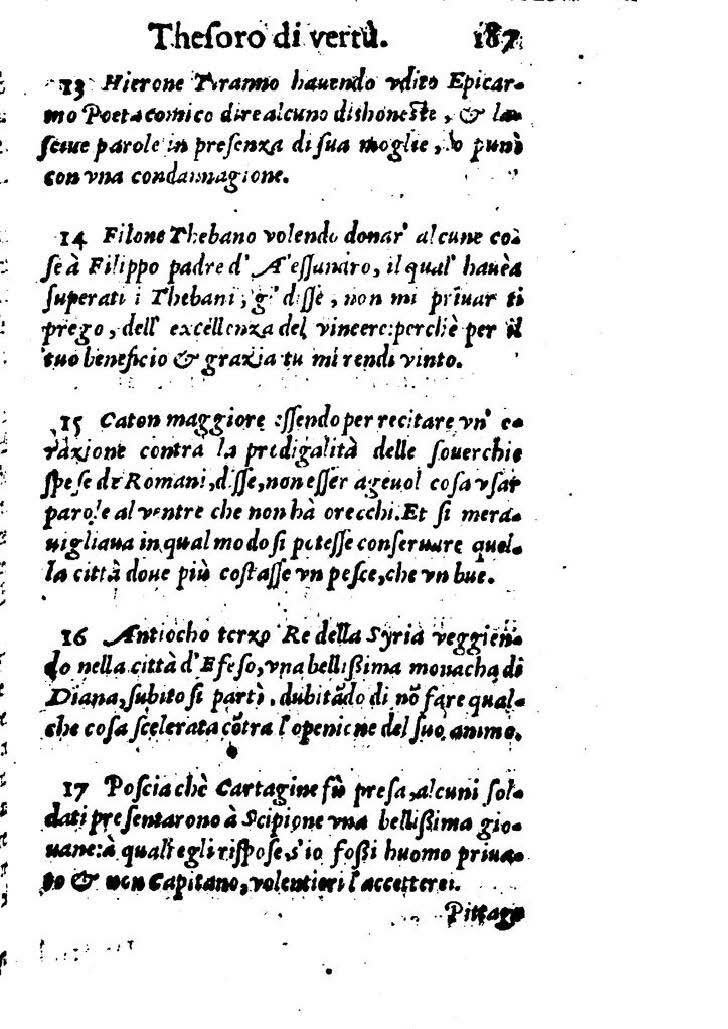 Theſoro di vertù. 187
13 Hierone Tyranno hauendo vdito Epicar-
mo Poeta comico dire alcuno dishoneste, & la-
ſciue parole in preſenza di ſua moglie, lo punì
con vna condannagione.
14 Filone Thebano volendo donar' alcune co-
ſe à Filippo padre d' Aleſſandro, il qual' hauèa
ſuperati i Thebani, gli diſſe, non mi priuar ti
prego, dell' excellenza del vincere: perchè per il
tuo beneficio & grazia tu mi rendi vinto.
15 Caton maggiore eſſendo per recitare vn' o-
razione contra la prodigalità delle ſouerchie
ſpeſe de Romani, diſſe, non eſſer ageuol coſa vſar
parole al ventre che non hà orecchi. Et ſi mera-
uigliaua in qual modo ſi poteſſe conſeruare quel-
la città doue più coſtaſſe vn peſce, che vn bue.
16 Antiocho terzo Re della Syria veggien-
do nella città d' Efeſo, vna belliſſima monacha di
Diana, ſubito ſi partì, dubitãdo di nõ fare qual-
che coſa ſcelerata cõtra l'openione del ſuo animo.
17 Poſcia chè Cartagine fù preſa, alcuni ſol-
dati preſentarono à Scipione vna belliſſima gio-
uane: à quali egli riſpoſe, s'io foſſi huomo priua-
to & non Capitano, volentieri l'accetterei.
Pittago